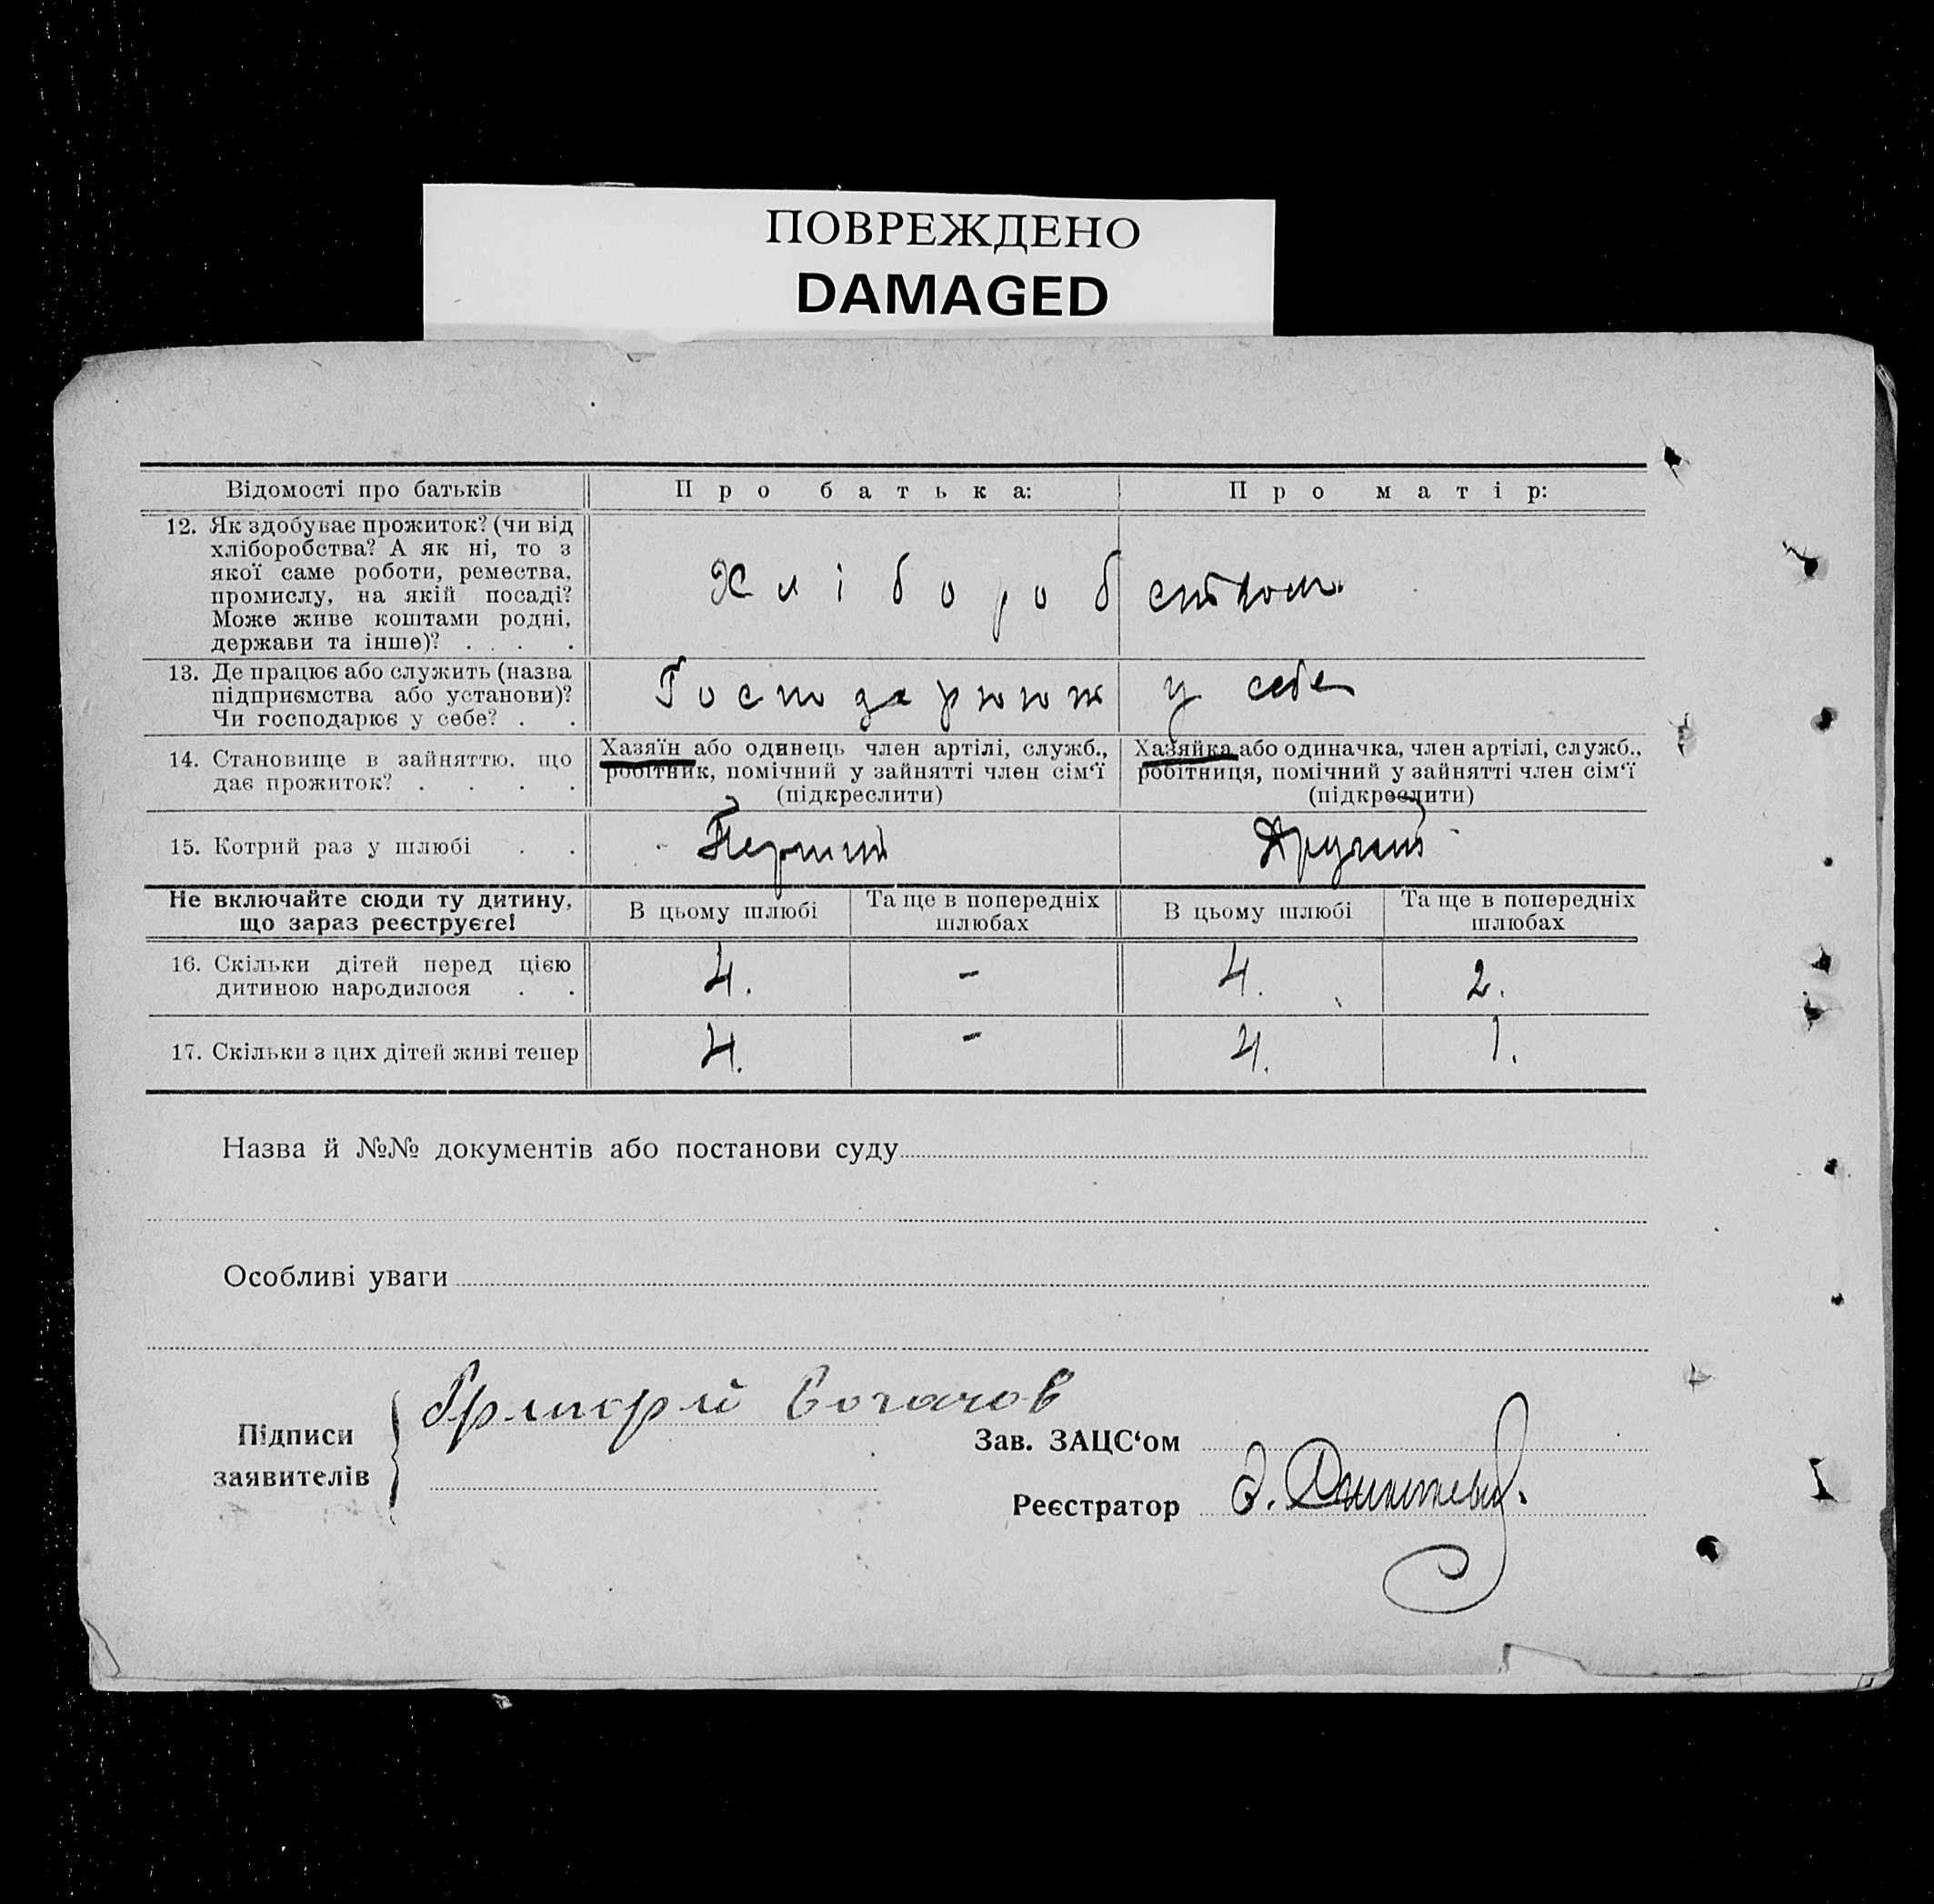 ПОВРЕЖДЕНО
DAMAGED
Відомості про батьків Про батька: Про матір:
12. Як здобуває прожиток? (чи від
хліборобства? А як ні, то з
якої саме роботи, ремества,
промислу, на якій посаді?
Може живе коштами родні,
держави та інше)? . . . .
Хліборобством.
13. Де працює або служить (назва
підприємства або установи)?
Чи господарює у себе? . .
Господарюют у себе
14. Становище в зайняттю, що
дає прожиток? . . . .
Хазяїн або одинець член артілі, служб.,
робітник, помічний у зайнятті член сім'ї
(підкреслити)
Хазяйка або одиначка, член артілі, служб.,
робітниця, помічний у зайнятті член сім'ї
(підкреслити)
15. Котрий раз у шлюбі . . Перший Другий
Не включайте сюди ту дитину,
що зараз реєструєте!
В цьому шлюбі
Та ще в попередніх
шлюбах
В цьому шлюбі
Та ще в попередніх
шлюбах
16. Скільки дітей перед цією
дитиною народилося . .
4. - 4. 2.
17. Скільки з цих дітей живі тепер 4. - 4. 1.
Назва й №№ документів або постанови суду
Особливі уваги
Підписи
заявителів
Богачов
Зав. ЗАЦС'ом
Реєстратор